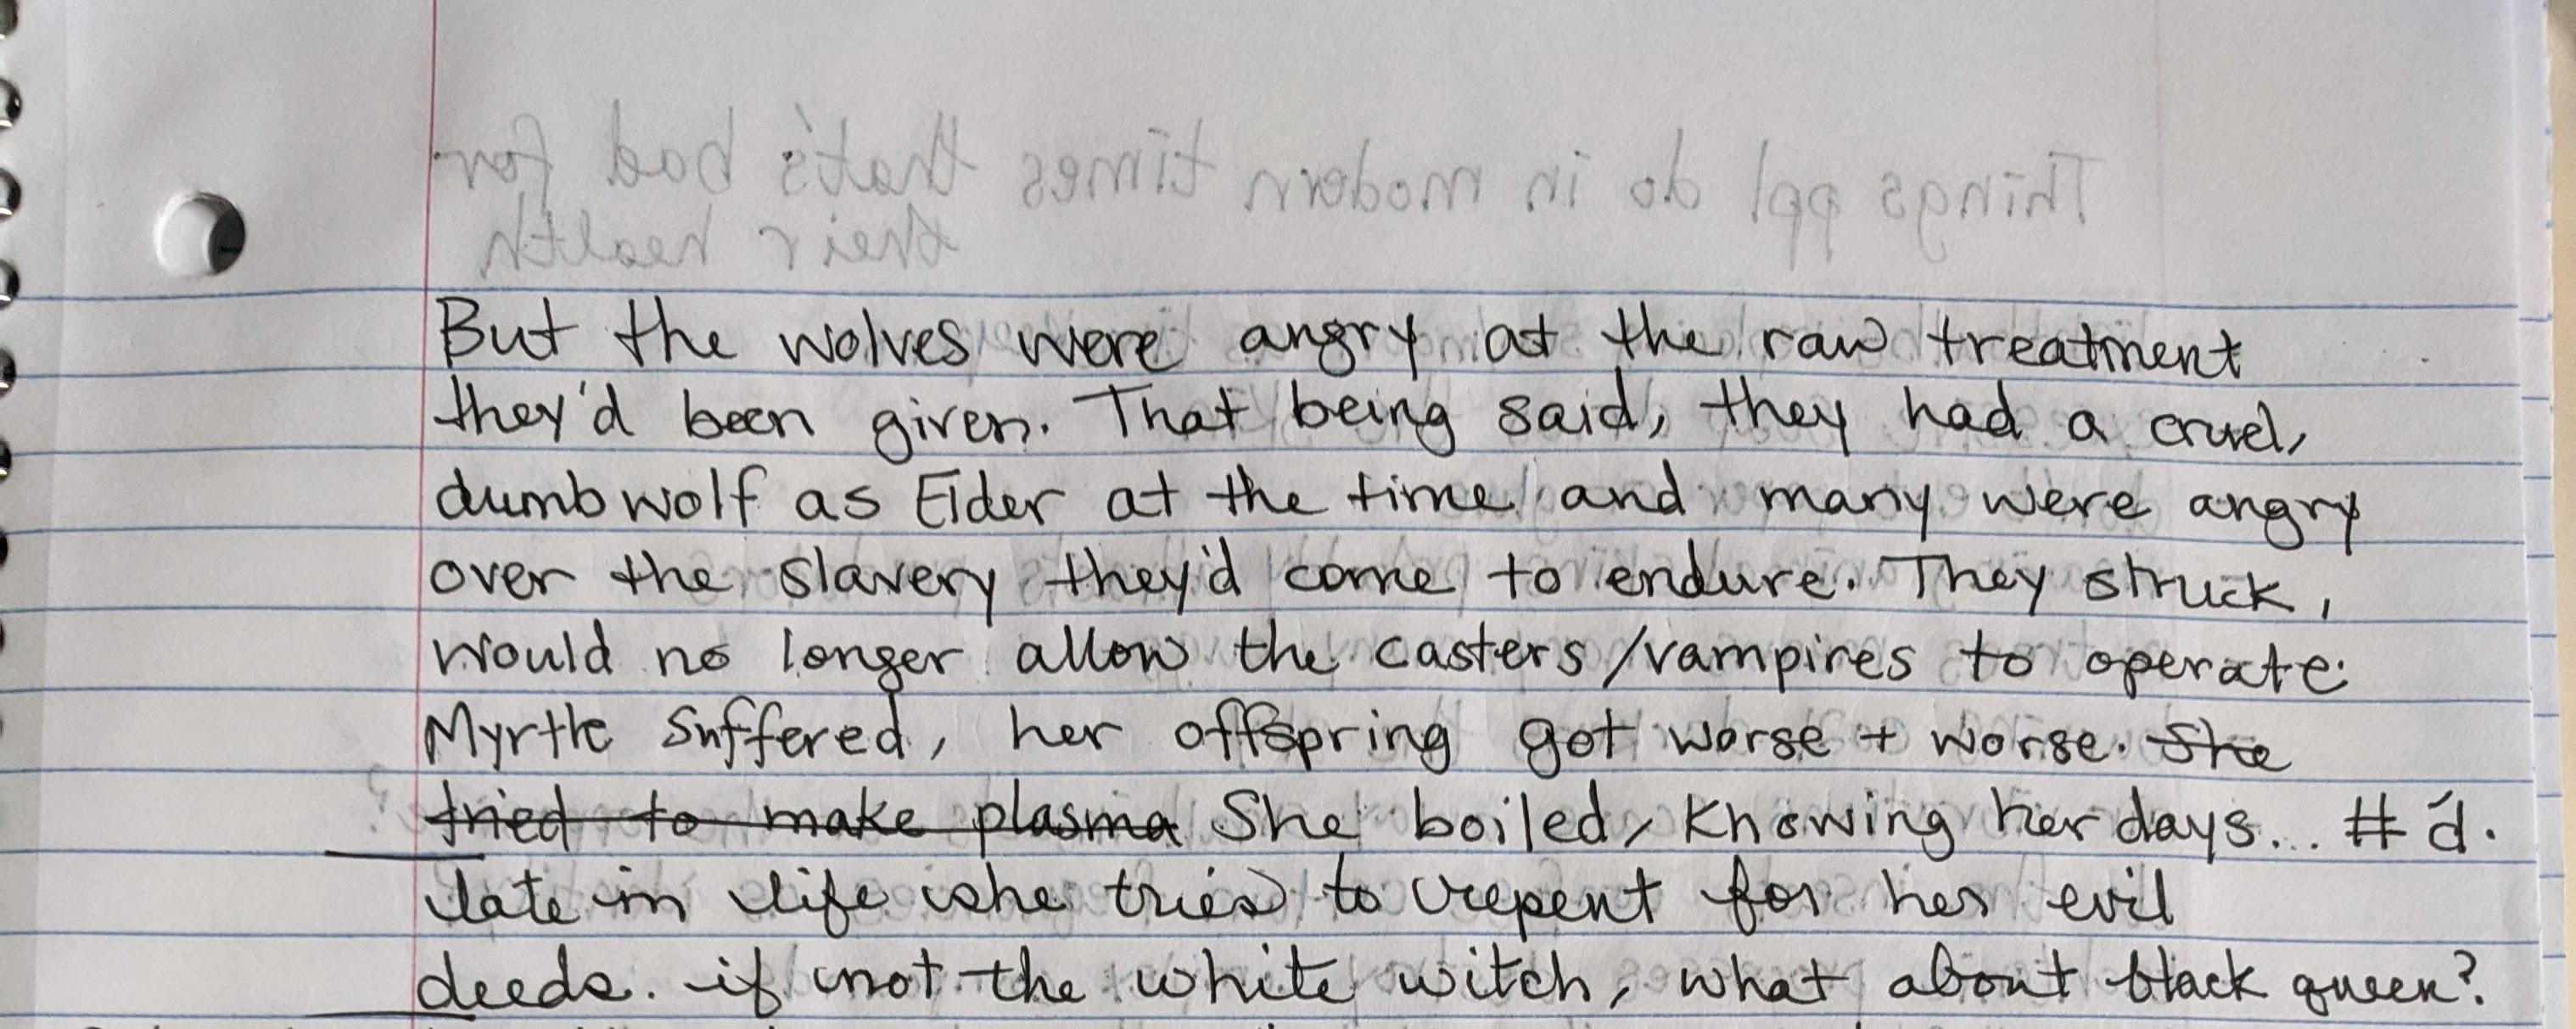 Things ppl do in modern times that's bad for
their health
But the wolves were angry at the raw treatment
they'd been given. That being said, they had a cruel,
dumb wolf as Elder at the time and many were angry
over the slavery they'd come to endure. They struck,
would no longer allow the casters/vampires to operate.
Myrtle suffered, her offspring got worse + worse. She
tried to make plasma She boiled, knowing her days... #'d.
late in life she tries to repent for her evil
deeds. if not the white witch, what about black queen?